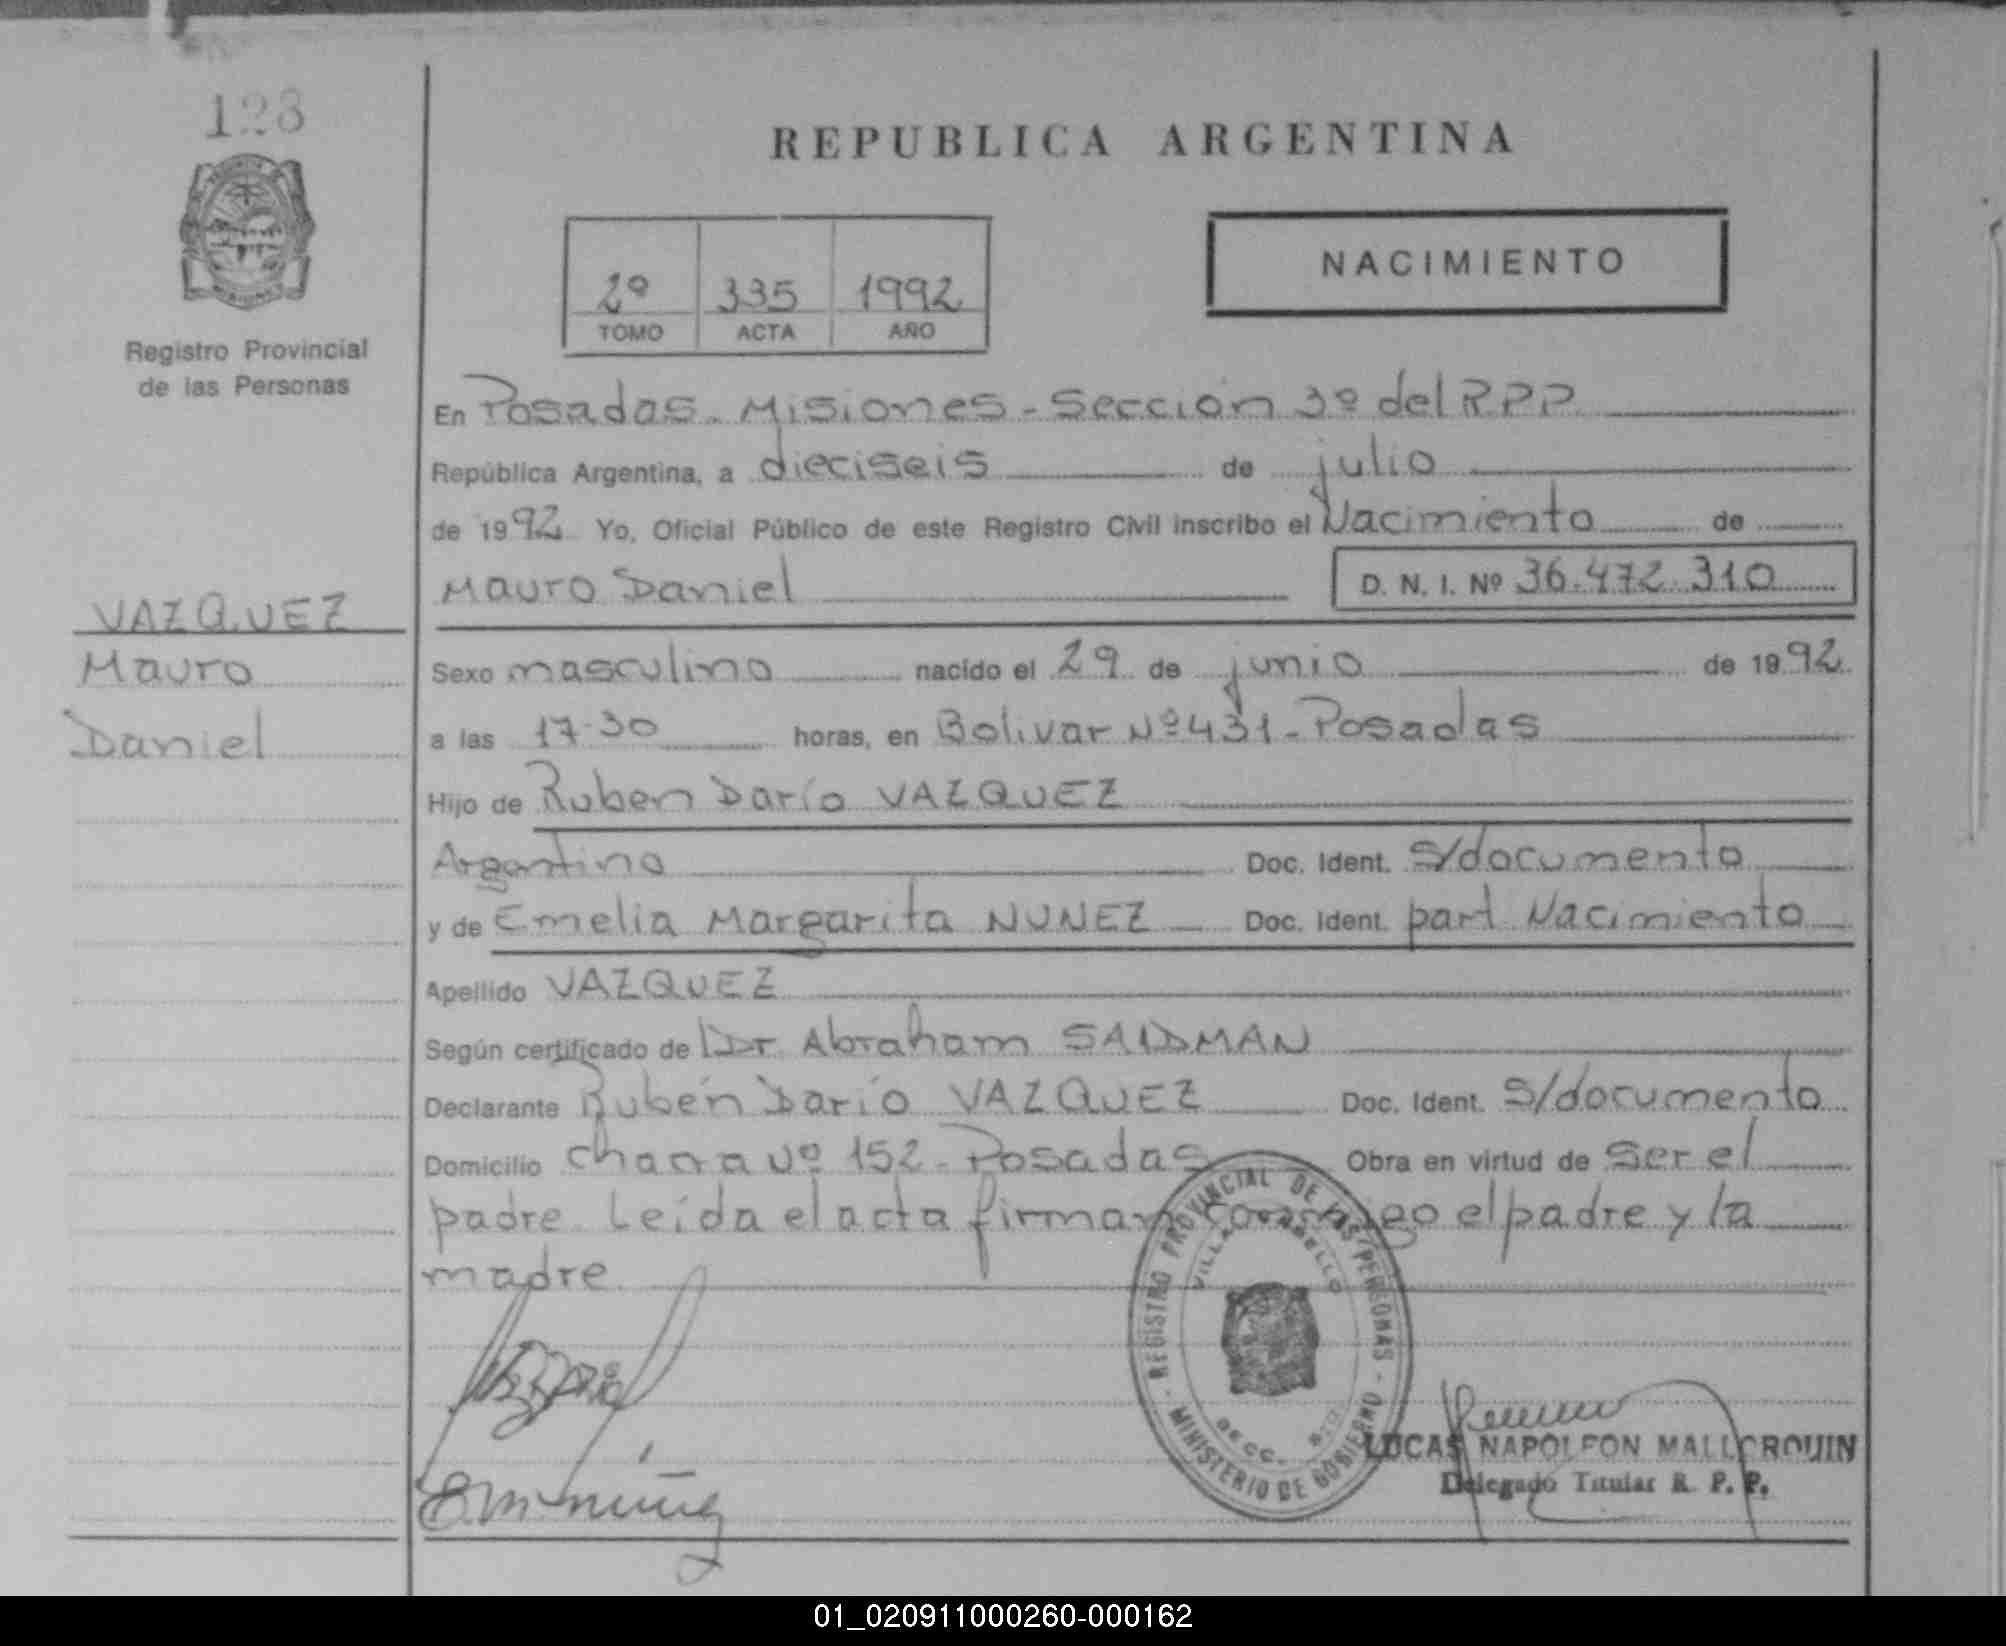 123
REPUBLICA ARGENTINA
2º 335 1992
TOMO ACTA AÑO
NACIMIENTO
Registro Provincial
de las Personas
En Posadas - Misiones - Sección 3º del R.P.P.
República Argentina, a dieciseis de julio
de 1992 Yo, Oficial Público de este Registro Civil inscribo el Nacimiento de
Mauro Daniel D. N. I. Nº 36.472.310
VAZQUEZ
Mauro
Daniel
Sexo masculino nacido el 29 de junio de 1992
a las 17.30 horas, en Bolivar Nº 431 - Posadas
Hijo de Ruben Darío VAZQUEZ
Argentino Doc. Ident. S/documento
y de Emelia Margarita NUNEZ Doc. Ident. part Nacimiento
Apellido VAZQUEZ
Según certificado de Dr Abraham SAIDMAN
Declarante Rubén Darío VAZQUEZ Doc. Ident. S/documento
Domicilio chacra Nº 152 - Posadas Obra en virtud de Ser el
padre. Leída el acta firman conmigo el padre y la
madre
REGISTRO PROVINCIAL DE LAS PERSONAS - MINISTERIO DE GOBIERNO -
VILLA CABELLO
E M. núñez
LUCAS NAPOLEON MALLORQUIN
Delegado Titular R. P. P.
01_020911000260-000162